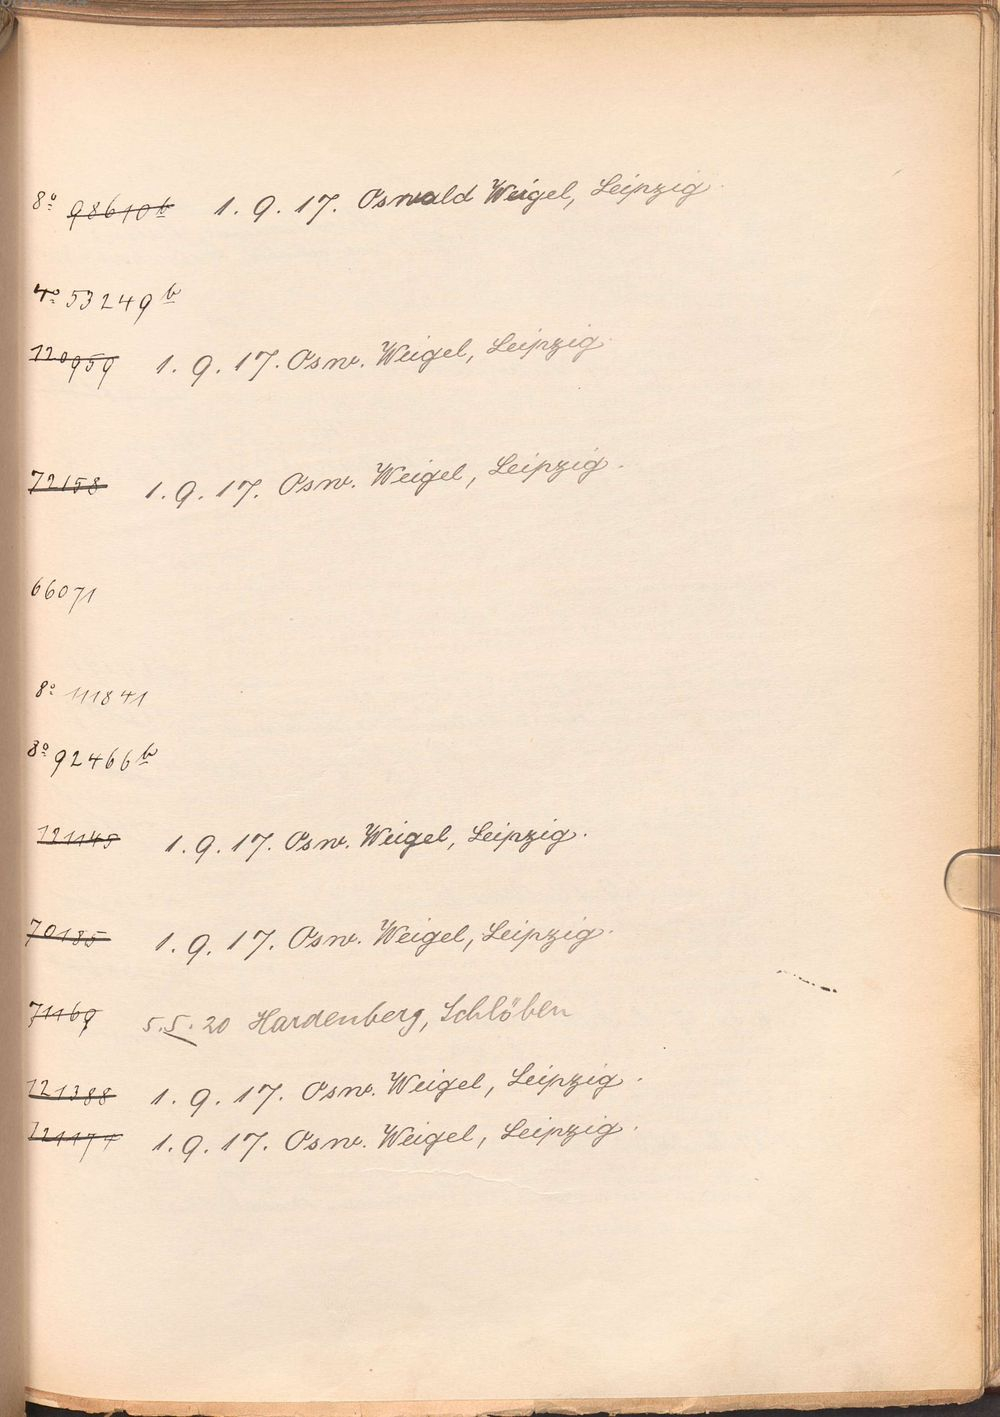 8º 98610b 1. 9. 17. Oswald Weigel, Leipzig.
4º 53249b
120959 1. 9. 17. Osw. Weigel, Leipzig.
72158 1. 9. 17. Osw. Weigel, Leipzig.
66071
8º 111841
8º 92466b
121145 1. 9. 17. Osw. Weigel, Leipzig.
70185 1. 9. 17. Osw. Weigel, Leipzig.
71169 5. 5. 20 Hardenberg, Schlöben
121388 1. 9. 17. Osw. Weigel, Leipzig.
1. 9. 17. Osw. Weigel, Leipzig.